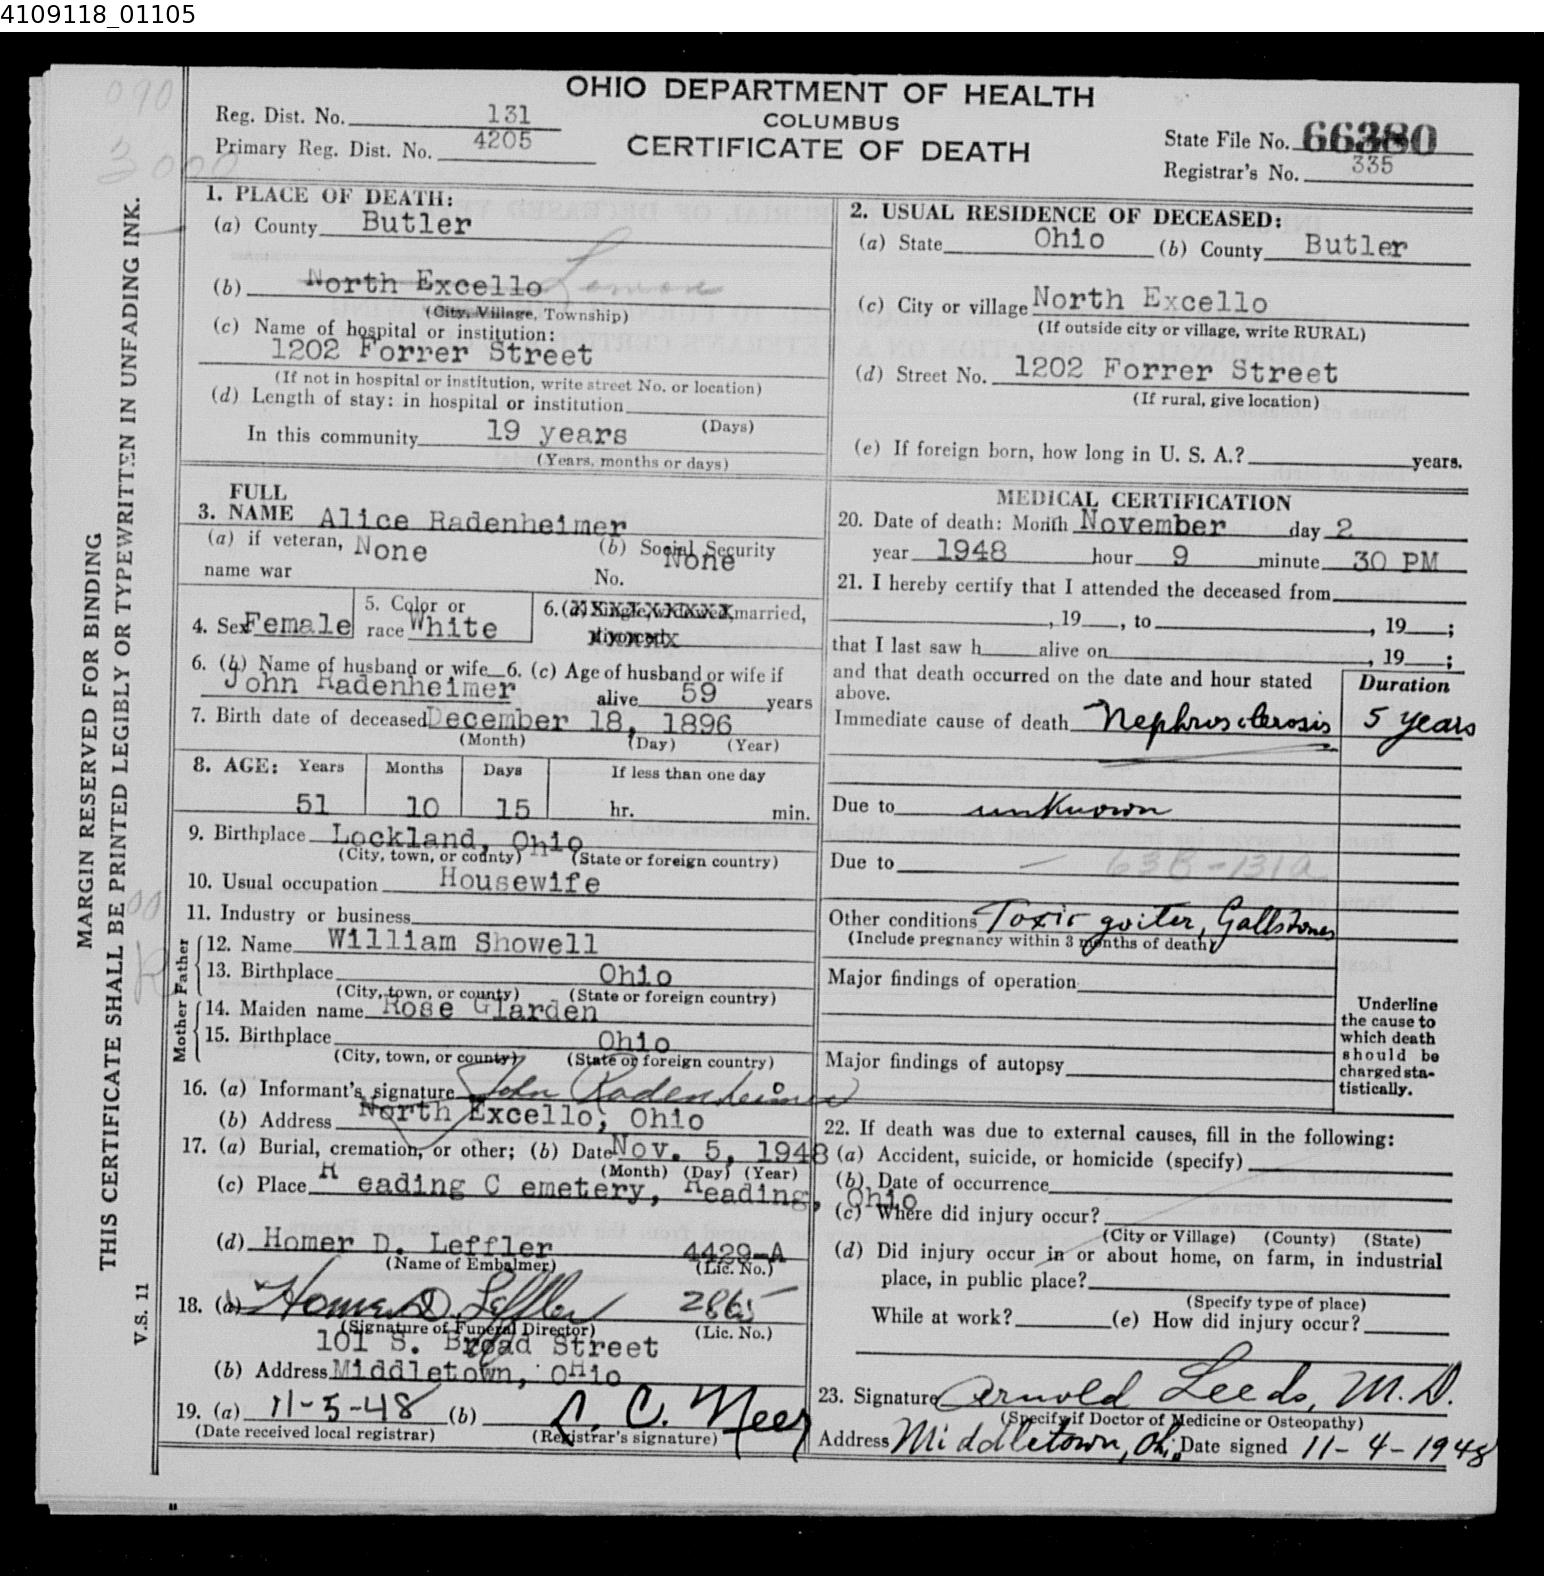 4109118_01105
090
3000
OHIO DEPARTMENT OF HEALTH
COLUMBUS
CERTIFICATE OF DEATH
Reg. Dist. No. 131
Primary Reg. Dist. No. 4205
State File No. 66380
Registrar's No. 335
MARGIN RESERVED FOR BINDING
THIS CERTIFICATE SHALL BE PRINTED LEGIBLY OR TYPEWRITTEN IN UNFADING INK.
V.S. 11
1. PLACE OF DEATH:
(a) County Butler
(b) North Excello Lemon
(City, Village, Township)
(c) Name of hospital or institution:
1202 Forrer Street
(If not in hospital or institution, write street No. or location)
(d) Length of stay: in hospital or institution
(Days)
In this community 19 years
(Years, months or days)
2. USUAL RESIDENCE OF DECEASED:
(a) State Ohio (b) County Butler
(c) City or village North Excello
(If outside city or village, write RURAL)
(d) Street No. 1202 Forrer Street
(If rural, give location)
(e) If foreign born, how long in U. S. A.? years.
3. FULL NAME Alice Radenheimer
(a) if veteran, name war None
(b) Social Security No. None
4. Sex Female
5. Color or race White
6. (a) Single, widowed, married, divorced
6. (b) Name of husband or wife John Radenheimer
6. (c) Age of husband or wife if alive 59 years
7. Birth date of deceased December 18, 1896
(Month) (Day) (Year)
8. AGE: Years Months Days If less than one day
51 10 15 hr. min.
9. Birthplace Lockland, Ohio
(City, town, or county) (State or foreign country)
10. Usual occupation Housewife
11. Industry or business
Father
12. Name William Showell
13. Birthplace Ohio
(City, town, or county) (State or foreign country)
Mother
14. Maiden name Rose Glarden
15. Birthplace Ohio
(City, town, or county) (State or foreign country)
16. (a) Informant's signature John Radenheimer
(b) Address North Excello, Ohio
17. (a) Burial, cremation, or other; (b) Date Nov. 5, 1948
(Month) (Day) (Year)
(c) Place R eading C emetery, Reading, Ohio
(d) Homer D. Leffler 4429-A
(Name of Embalmer) (Lic. No.)
18. (a) Homer D. Leffler 2865
(Signature of Funeral Director) (Lic. No.)
101 S. Broad Street
(b) Address Middletown, OHio
19. (a) 11-5-48 (b) C. Neer
(Date received local registrar) (Registrar's signature)
MEDICAL CERTIFICATION
20. Date of death: Month November day 2
year 1948 hour 9 minute 30 PM
21. I hereby certify that I attended the deceased from
, 19 , to , 19 ;
that I last saw h alive on , 19 ;
and that death occurred on the date and hour stated above.
Duration
Immediate cause of death Nephrosclerosis 5 years
Due to unknown
Due to — 63B-131a
Other conditions Toxic goiter, Gallstones
(Include pregnancy within 3 months of death)
Major findings of operation
Major findings of autopsy
Underline the cause to which death should be charged statistically.
22. If death was due to external causes, fill in the following:
(a) Accident, suicide, or homicide (specify)
(b) Date of occurrence
(c) Where did injury occur?
(City or Village) (County) (State)
(d) Did injury occur in or about home, on farm, in industrial
place, in public place?
(Specify type of place)
While at work? (e) How did injury occur?
23. Signature Arnold Leeds, M.D.
(Specify if Doctor of Medicine or Osteopathy)
Address Middletown, Oh. Date signed 11-4-1948